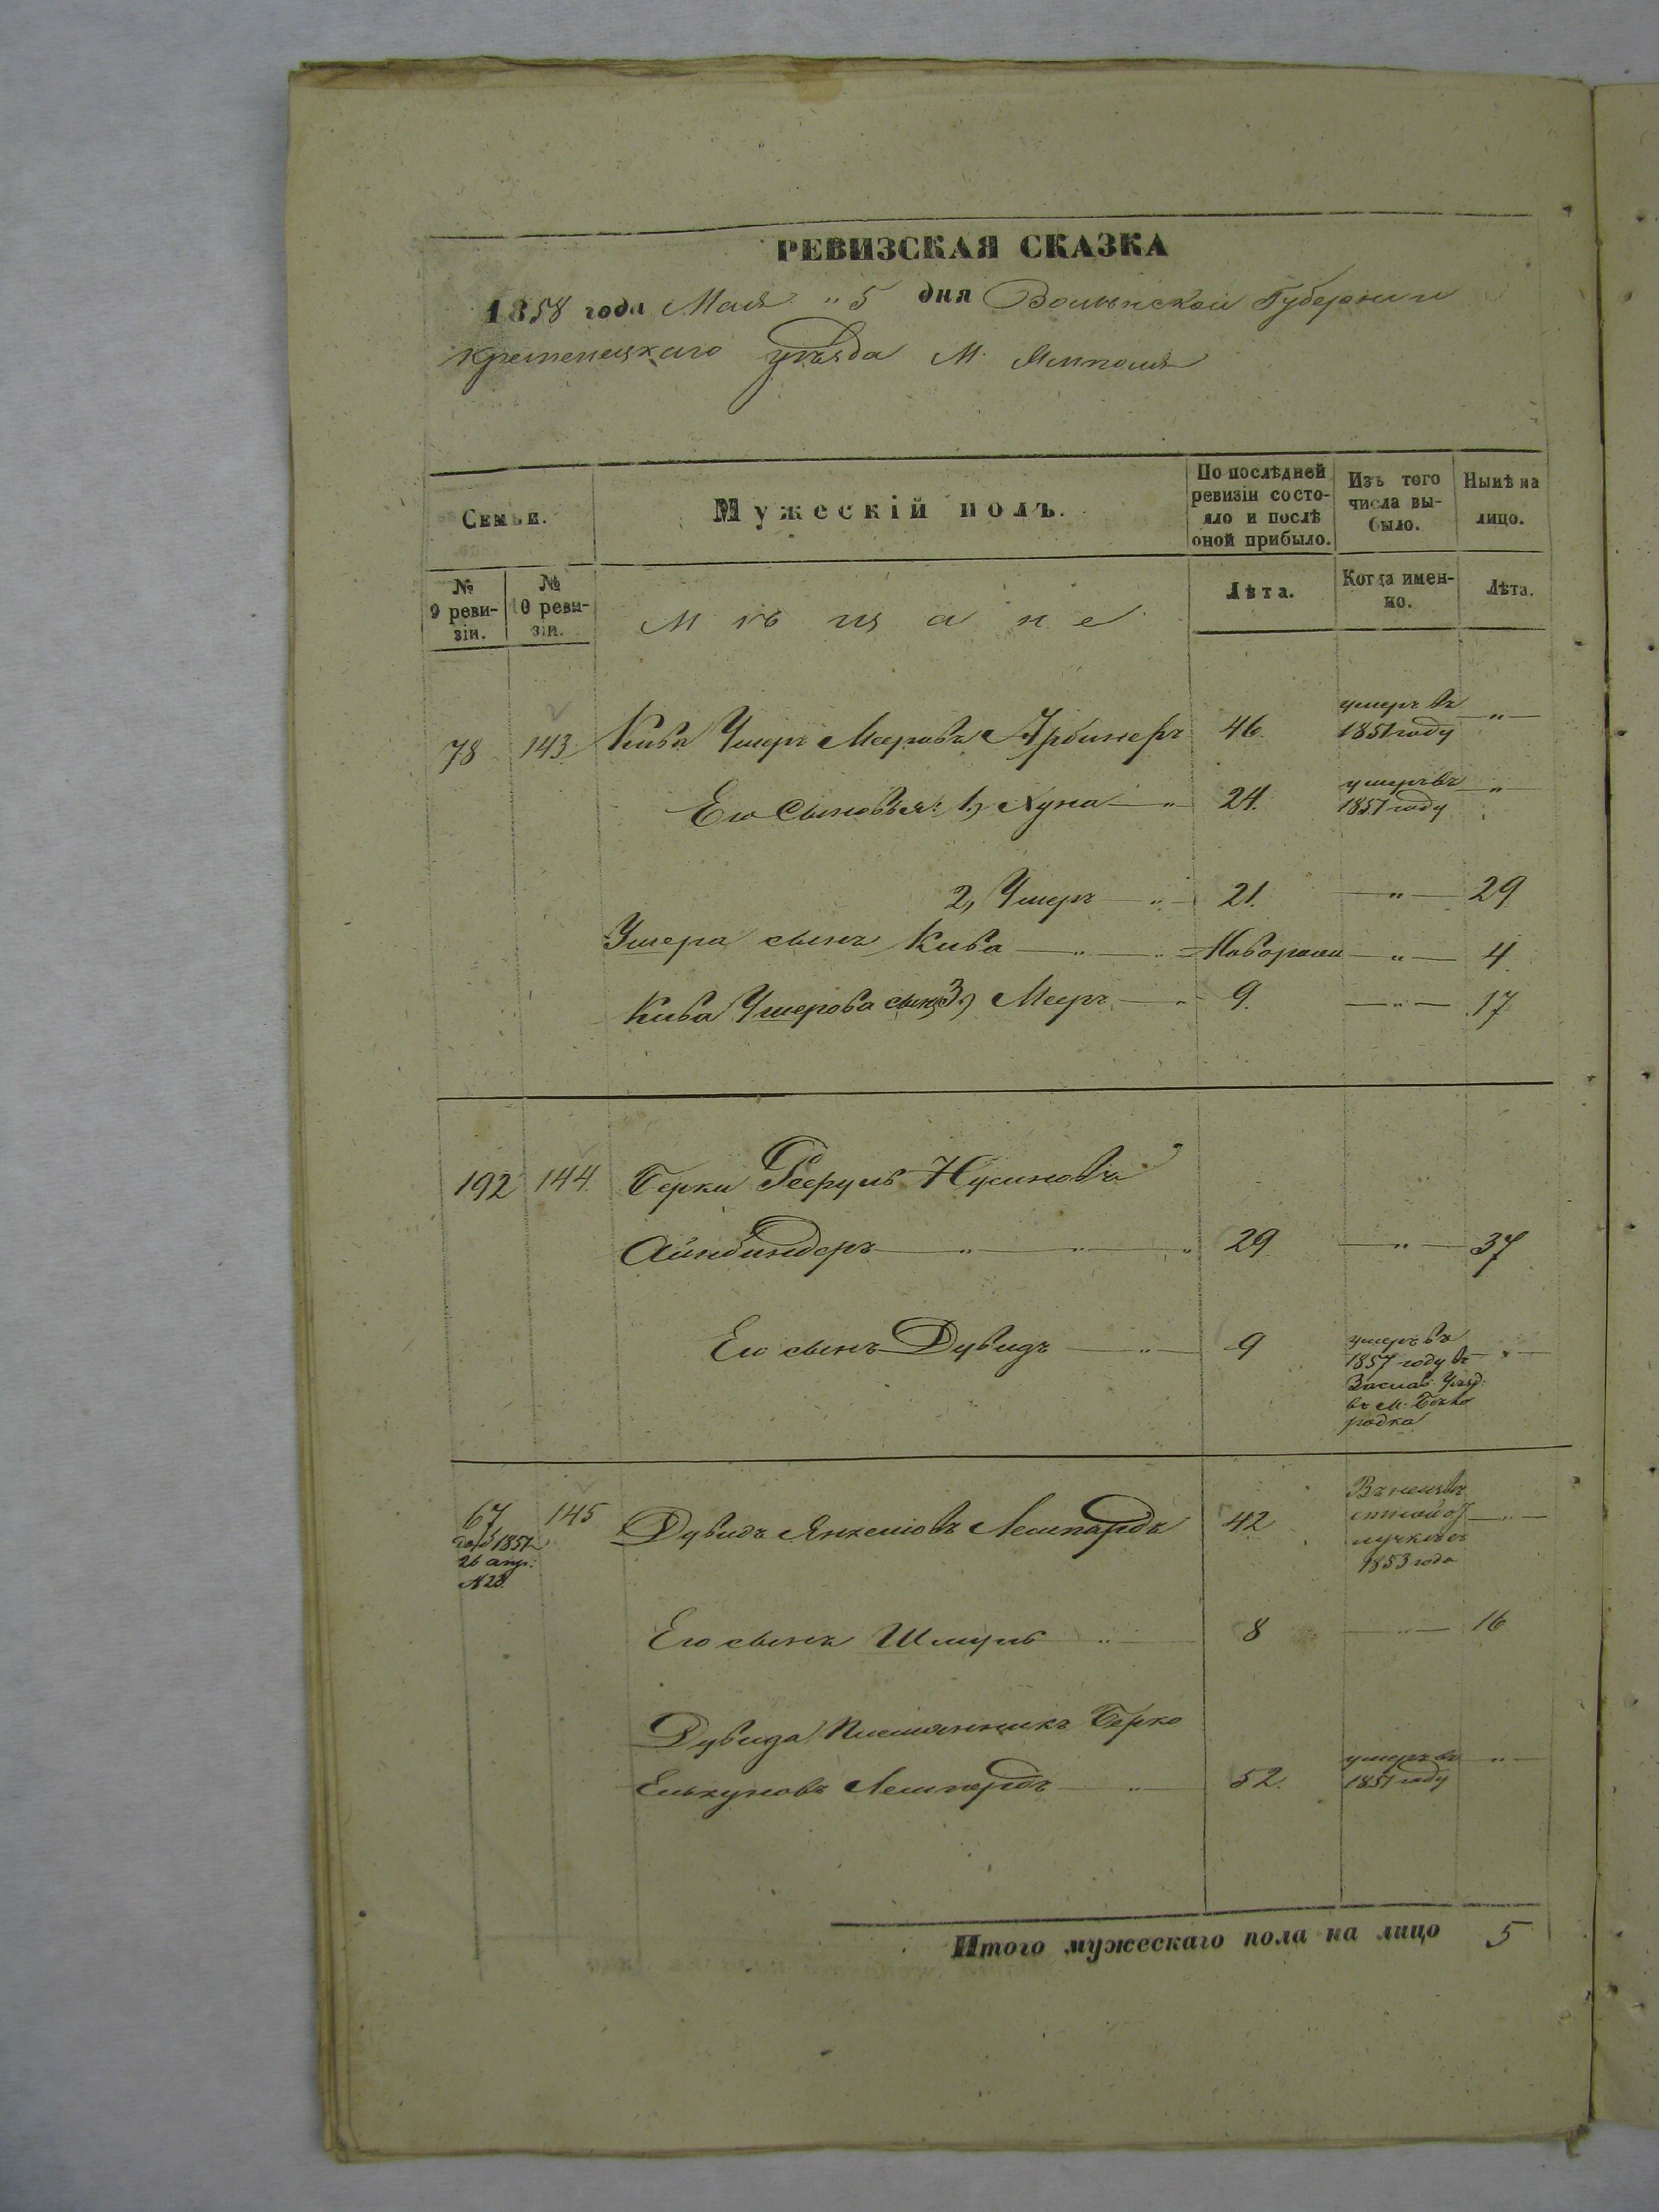 РЕВИЗСКАЯ СКАЗКА
1858 года Мая „ 5 дня Волынской Губернии
Кременецкаго уѣзда М. Ямполя
Семьи.
Мужескій полъ.
По послѣдней ревизіи состо-
яло и послѣ
оной прибыло.
Изъ того
числа вы-
было.
Нынѣ на
лицо.
№
9 реви-
зіи.
№
10 реви-
зіи.
Мѣщане
Лѣта.
Когда имен-
но.
Лѣта.
78 143 Кива Ушеръ Мееровъ 46. умеръ въ
1851 году „
Его Сыновья: 1, Хуна „ 24. умеръ въ
1851 году „
2, Ушеръ „ 21. „ 29
Ушера сынъ Кива „ „ Новорожд „ 4
Кива Ушерова сынъ 3, Мееръ „ 9. „ 17
192 144 Берки Нусиновъ
Айнбиндеръ „ „ „ 29 „ 37
Его сынъ Дувидъ „ 9 умеръ въ
1857 году въ „
Заслав. Уѣзд.
въ М. Бѣло
родка
67 145 Дувидъ Янкеліовъ 42
1851
26 апр.
№ 28.
1853 года
Его сынъ Шмуль „ 8 „ 16
Дувида Племянникъ Берко
52. умеръ въ „
1851 году
Итого мужескаго пола на лицо 5